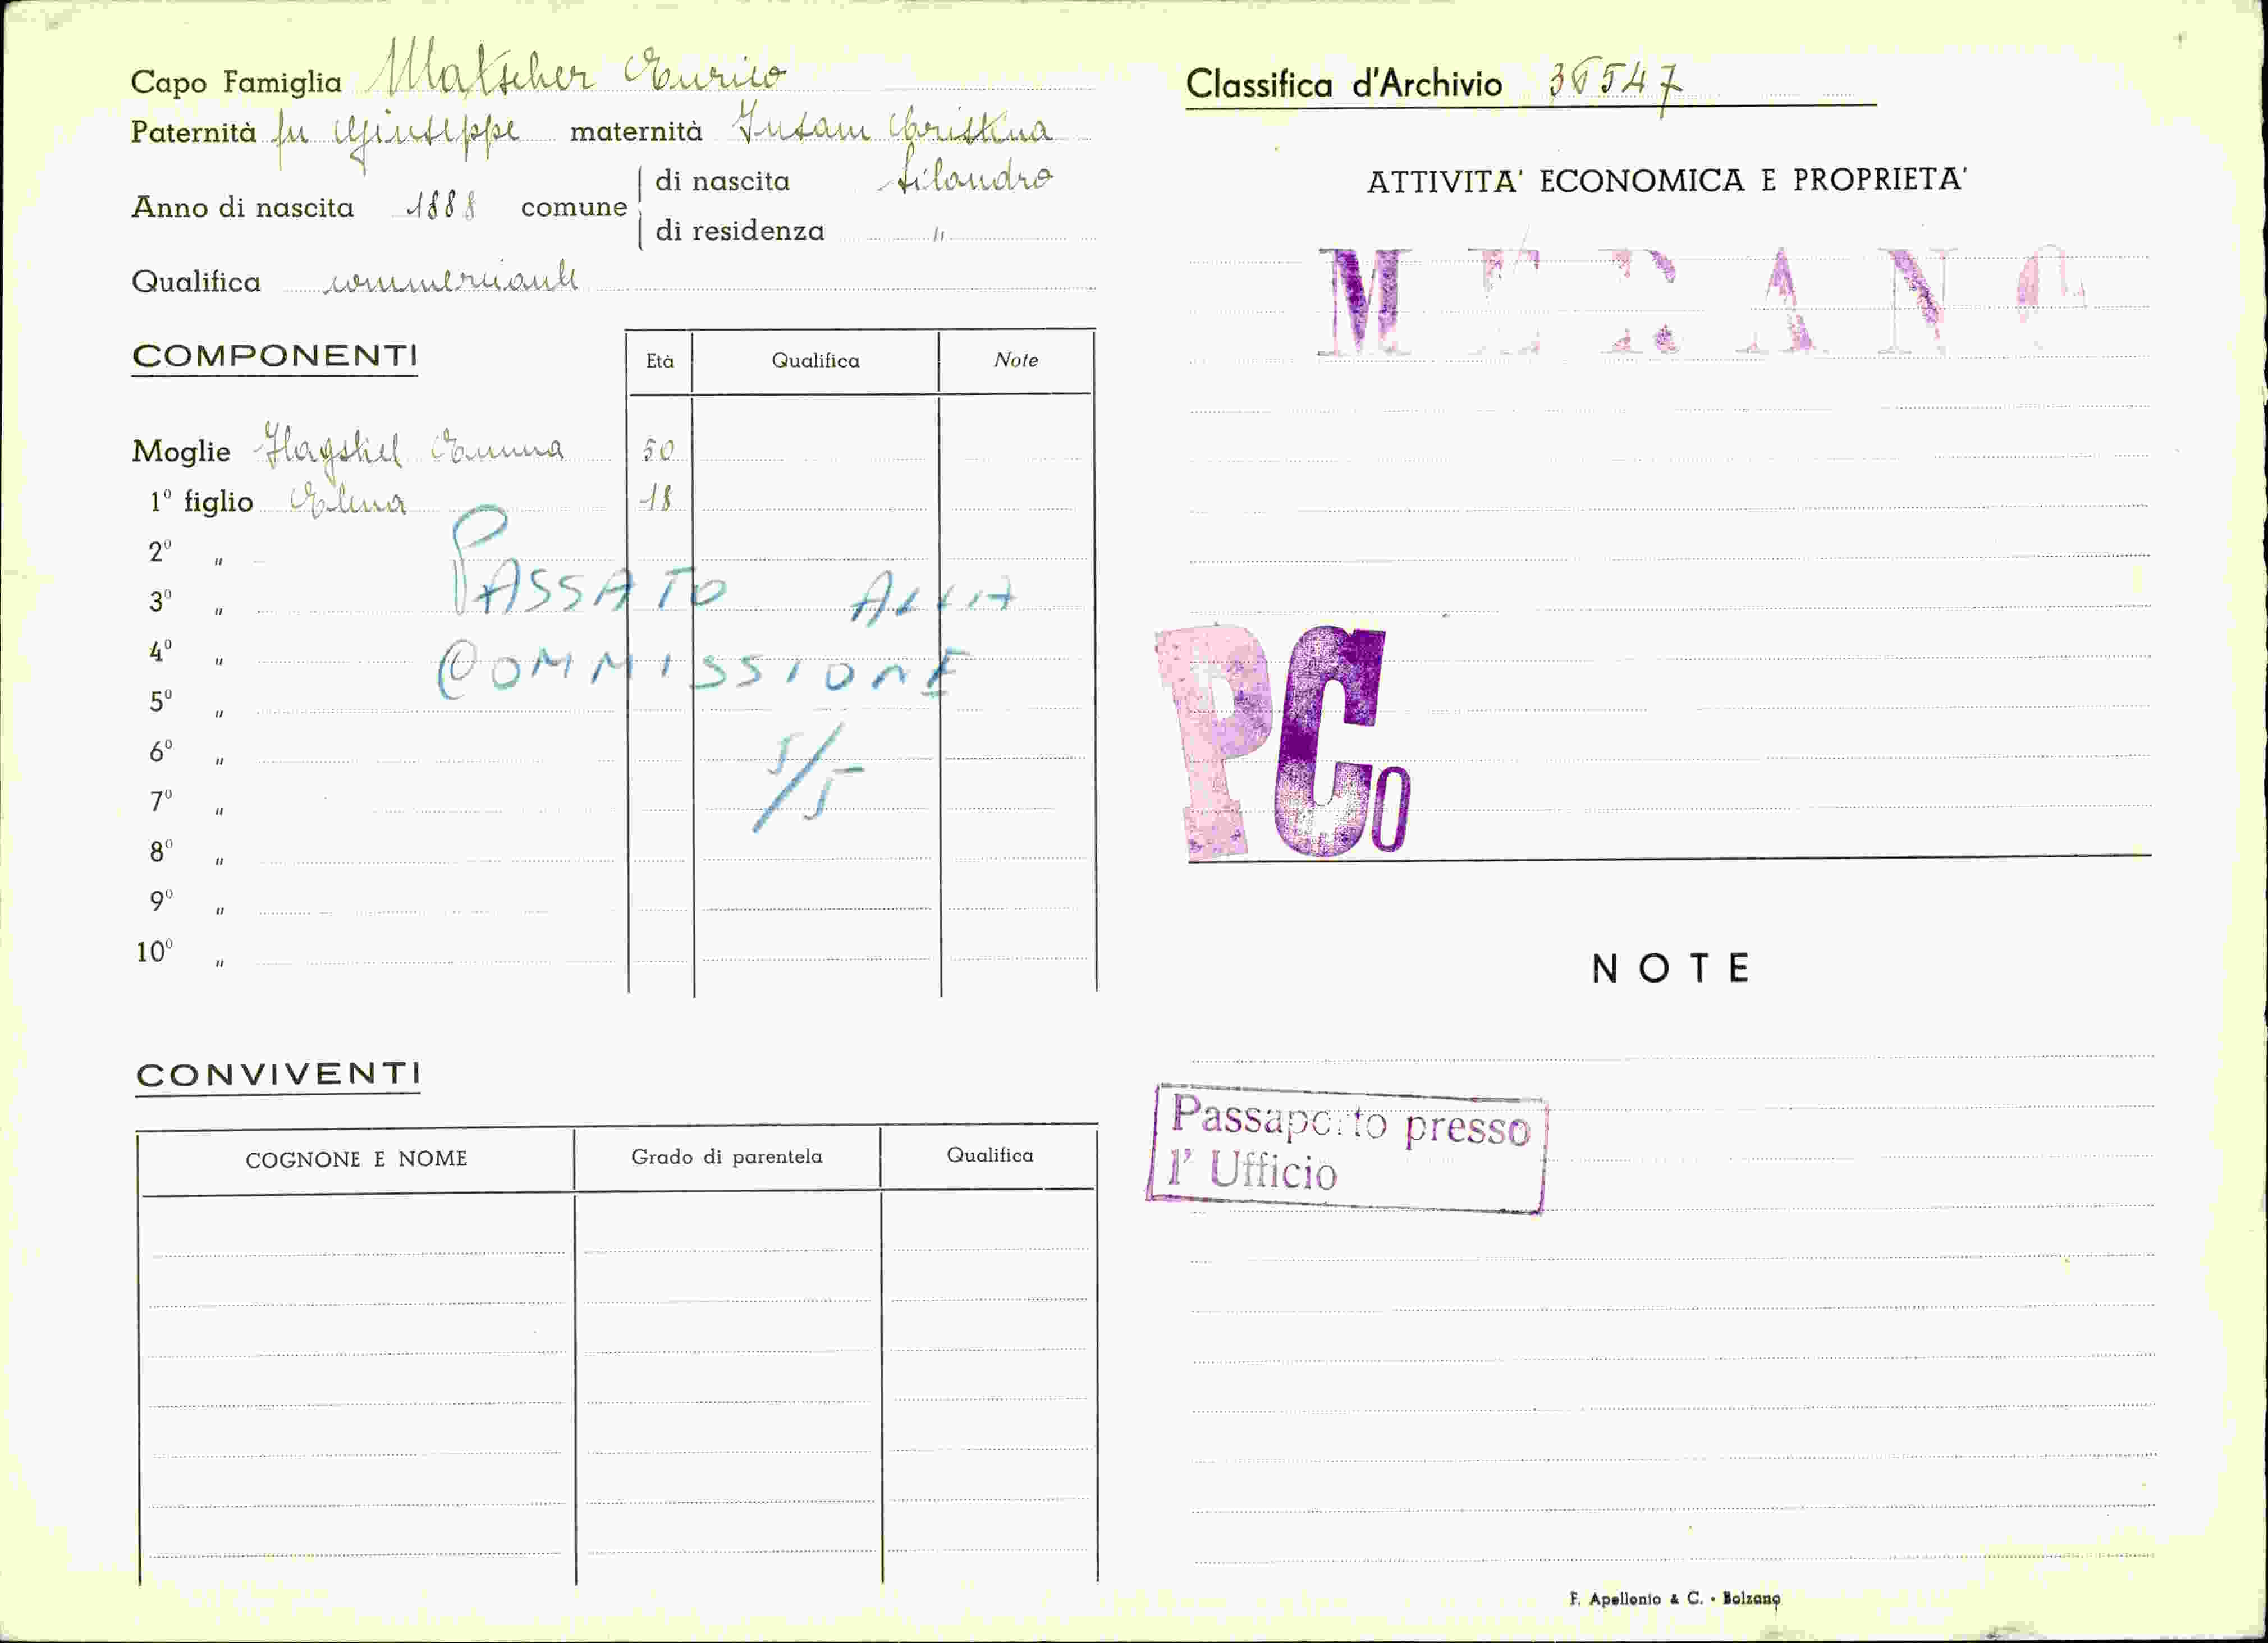 Capo Famiglia Matscher Enrico
Paternità fu Giuseppe maternità Christina
Anno di nascita 1888 comune
di nascita Silandro
di residenza "
Qualifica commerciante
COMPONENTI
Età Qualifica Note
Moglie Emma 50
1º figlio Elena 18
2º "
3º "
4º "
5º "
6º "
7º "
8º "
9º "
10º "
PASSATO ALLA
COMMISSIONE
5/5
CONVIVENTI
COGNONE E NOME Grado di parentela Qualifica
Classifica d'Archivio 36547
ATTIVITA' ECONOMICA E PROPRIETA'
MERANO
PCo
NOTE
Passaporto presso
l' Ufficio
F. Apollonio & C. - Bolzano